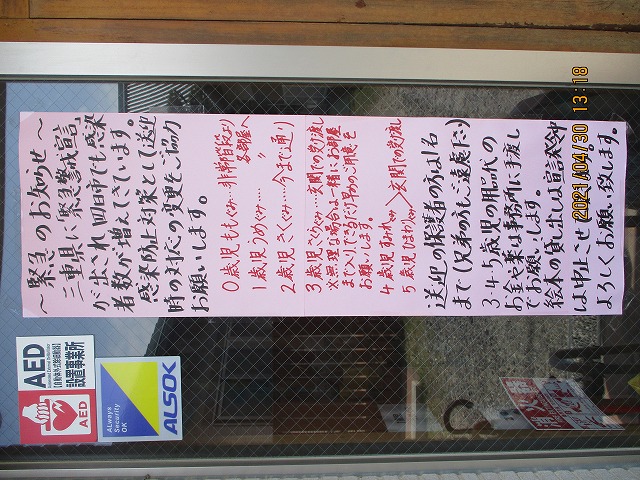 ～緊急のお知らせ～
三重県に「緊急警戒宣言」
が出され四日市でも感染
者数が増えてきています。
感染防止対策として送迎
時の対応の変更をご協力
お願いします。
0歳児ももぐみ…非常階段より
各部屋へ
1歳児うめぐみ…〃
2歳児きくぐみ…今まで通り
3歳児さくらぐみ…玄関での受け渡し
※無理な場合は一緒にお部屋
まで入りできるだけ早めのご用意を
お願いします。
4歳児すみれぐみ
5歳児ひまわりぐみ
＞玄関での受け渡し
送迎の保護者の方は1名
まで(兄弟の方もご遠慮ください)
3・4・5歳児の用品代の
お金や薬は事務所に手渡し
でお願いします。
絵本の貸し出しは宣言発令中
は中止させて
よろしくお願い致します。
2021/04/30 13:18
AED
設置事業所
AED
ALSOK
ALways
Security
OK